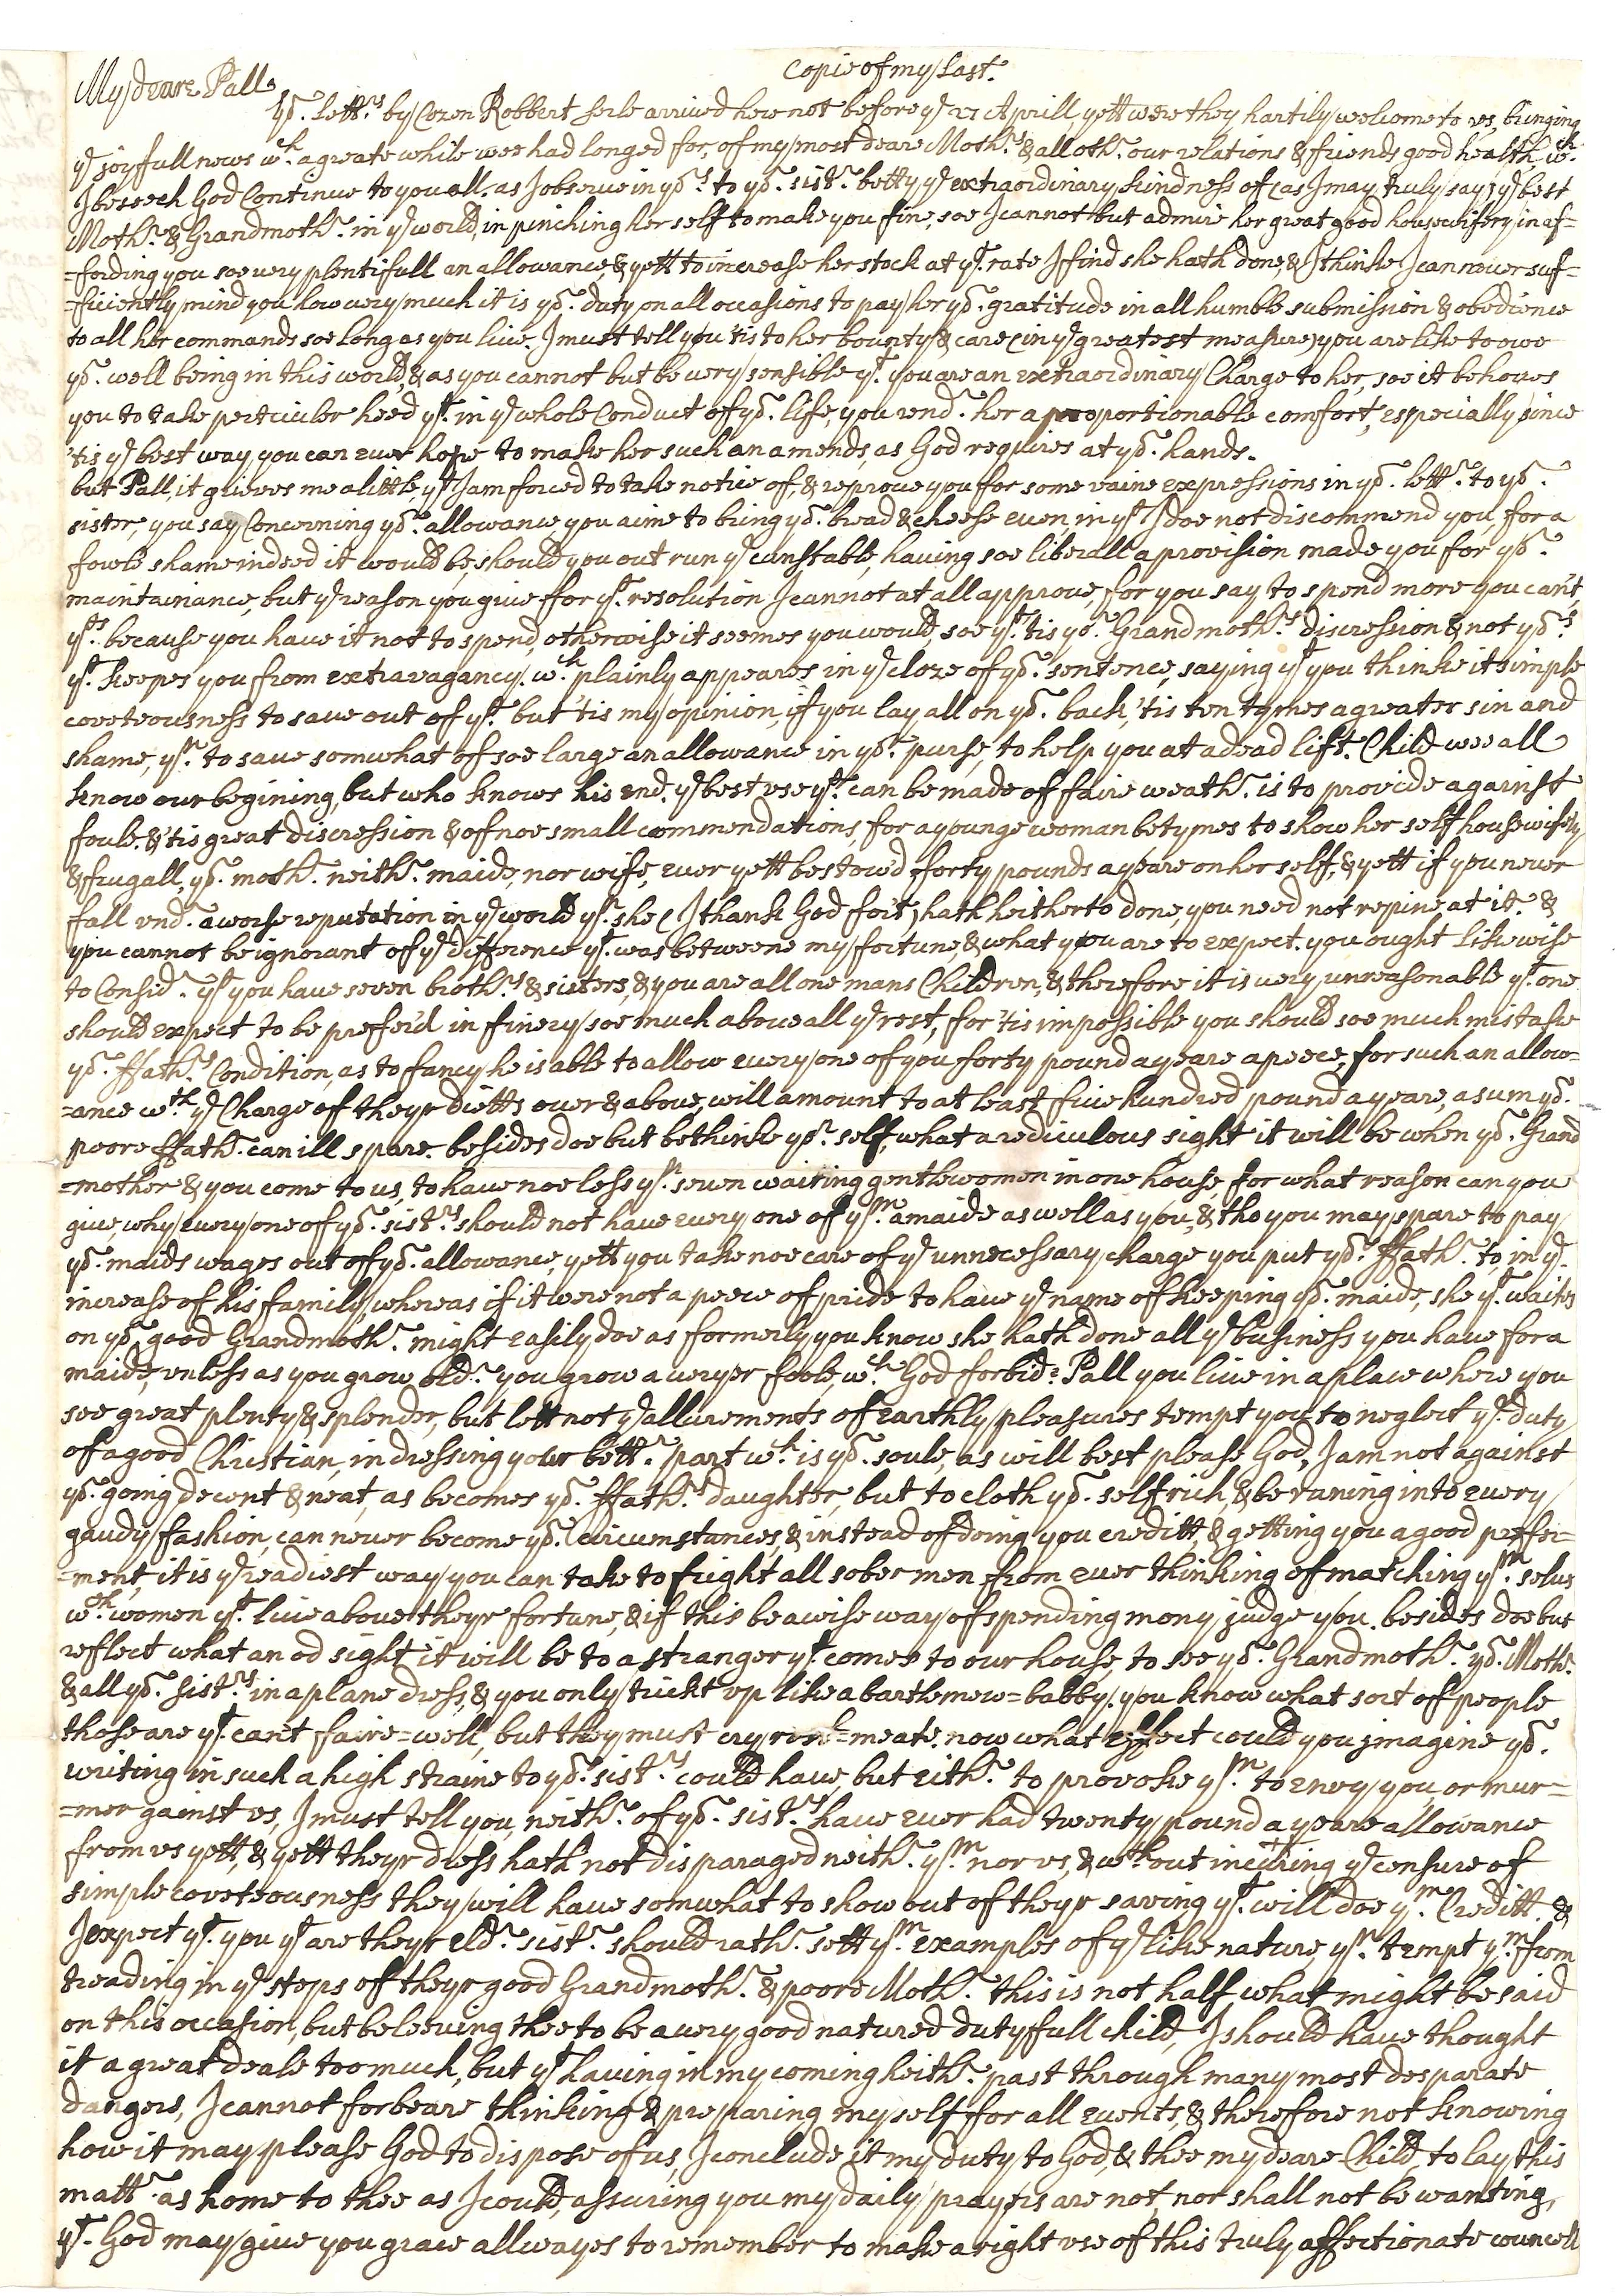 Copie of my last.
My deare Pall
yor. lettrs. by Cozen Robbert serle arrived here not before ye 27 Aprill yett were they hartily welcome to vs, bringing
ye joyfull news wch. a greate while wee had longed for, of my most deare Mothrs. & all othr. our relations & friends good health wch.
I beseech God Continue to you all, as I observe in yors. to yor. sistr. betty ye extraordinary kindness of (as I may truly say) ye best
Mothr. & Grandmothr. in ye world, in pinching her self to make you fine, soe I cannot but admire her great good housewifery in af=
=fording you soe very plentifull an allowance, & yett to increase her stock at yt. rate I find she hath done, & I thinke I can never suf=
=ficiently mind you how very much it is yor. duty on all occasions to pay her yor. gratitude in all humble submission & obedience
to all her commands soe long as you live. I must tell you 'tis to her bounty & care (in ye greatest measure) you are like to owe
yor. well being in this world, & as you cannot but be very sensible yt. you are an extraordinary Charge to her, soe it behoves
you to take perticuler heed yt. in ye whole Conduct of yor. life, you rendr. her a proportionable comfort, especially since
'tis ye best way you can ever hope to make her such an amends, as God requires at yor. hands.
but Pall, it grieves me a little, yt I am forced to take notice of, & reprove you for some vaine expressions in yor. lettr. to yor.
sister, you say Concerning yor. allowance, you aime to bring yor. bread & cheese even, in yt I doe not discommend you, for a
fowle shame indeed it would be, should you out run ye cunstable, having soe liberall a provision made you for yor.
maintainance, but ye reason you give for yt. resolution I cannot at all approve, for you say to spend more you can't,
yts. because you have it not to spend, otherwise it seemes you would, soe yt. 'tis yor. Grandmothrs. discression & not yors.
yt. keepes you from extravagancy. wch. plainly appeares in ye cloze of yor. sentence, saying yt you thinke it simple
coveteousness to save out of yrs. but 'tis my opinion, if you lay all on yor. back, 'tis ten tymes a greater sin and
shame, yn. to save somwhat of soe large an allowance in yor. purse, to help you at a dead lift. Child wee all
know our begining, but who knows his end. ye best vse yt. can be made of faire weathr. is to provide against
foule. & 'tis great discression & of noe small commendations, for a younge woman betymes to show her self housewifely
& frugall, yor. mothr. neithr. maide, nor wife, ever yett bestow'd forty pounds a yeare on her self, & yett if you never
fall vndr. a worse reputation in ye world yn. she (I thank God for't) hath heitherto done, you need not repine at it. &
you cannot be ignorant of ye difference yt. was betweene my fortune, & what you are to expect. you ought likewise
to Considr. yt you have seven brothrs. & sisters, & you are all one mans Children, & therefore it is very unreasonable yt. one
should expect to be prefer'd in finery soe much above all ye rest, for 'tis impossible you should soe much mistake
yor. ffathrs. Condition, as to fancy he is able to allow every one of you forty pound a yeare a peece, for such an allow=
=ance wth. ye Charge of theyr dietts over & above, will amount to at least five hundred pound a yeare, a sum yor.
poore ffathr. can ill spare. besides doe but bethinke yor. self, what a rediculous sight it will be when yor. Grand
=mother & you come to us, to have noe less yn. seven waiting gentlewomen in one house, for what reason can you
give, why every one of yor. sistrs. should not have every one of ym. a maide as well as you, & tho you may spare to pay
yor. maids wages out off yor. allowance, yett you take noe care of ye unnecessary charge you put yor. ffathr. to, in ye.
increase of his family, whereas if it were not a peece of pride to have ye name of keeping yor. maide, she yt. waites
on yor. good Grandmothr. might easily doe as formerly you know she hath done all ye business you have for a
maide, vnless as you grow oldr. you grow a veryer foole, wch. God forbid. Pall you live in a place where you
see great plenty & splender, but lett not ye allurements of earthly pleasures tempt you to neglect ye. duty
of a good Christian, in dressing your bettr. part wch. is yor. soule, as will best please God, I am not against
yor. going decent & neat, as becomes yor. ffathrs. daughter, but to cloth yor. self rich, & be runing into every
gaudy fashion, can never become yor. circumstances, & instead of doing you creditt, & getting you a good prefer=
=ment, it is ye readiest way you can take to fright all sober men from ever thinking of matching ym. selves
wth. women yt. live above theyr fortune, & if this be a wise way of spending mony judge you. besides doe but
reflect what an od sight it will be to a stranger yt. comes to our house, to see yor. Grandmothr. yor. Mothr.
& all yor. sistrs. in a plane dress, & you only trickt vp like a bartlemew=babby. you know what sort of people
those are yt. can't faire=well, but they must cry rost=meate. now what effect could you jmagine yor.
writing in such a high straine to yor. sistrs. could have, but eithr. to provoke ym. to envy you, or mur=
=mer gainst vs, I must tell you, neithr. of yor. sistrs. have ever had twenty pound a yeare allowance
from vs yett, & yett theyr dress hath not disparaged neithr. ym. nor vs, & wthout incuring ye censure of
simple coveteousness they will have somwhat to show out of theyr saving yt. will doe ym. Creditt. &
I expect yt. you yt are theyr eldr. sistr. should rathr. sett ym. examples of ye like nature, yn. tempt ym. from
treading in ye steps of theyr good Grandmothr. & poore Mothr. this is not half what might be said
on this occasion, but beleeving thee to be a very good natured dutyfull child, I should have thought
it a great deale too much, but yt having in my coming heithr. past through many most desparate
dangers, I cannot forbeare thinking & preparing my self for all events, & therefore not knowing
how it may please God to dispose of us, I conclude it my duty to God, & thee my deare Child, to lay this
mattr. as home to thee as I could, assuring you my daily prayers are not, nor shall not be wanting,
yt. God may give you grace allwayes to remember to make a right vse of this truly affectionate councell